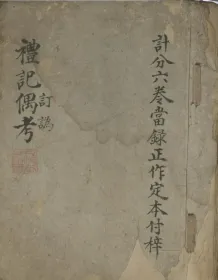 計分六卷當錄正作定本付梓
禮記偶考
訂譌